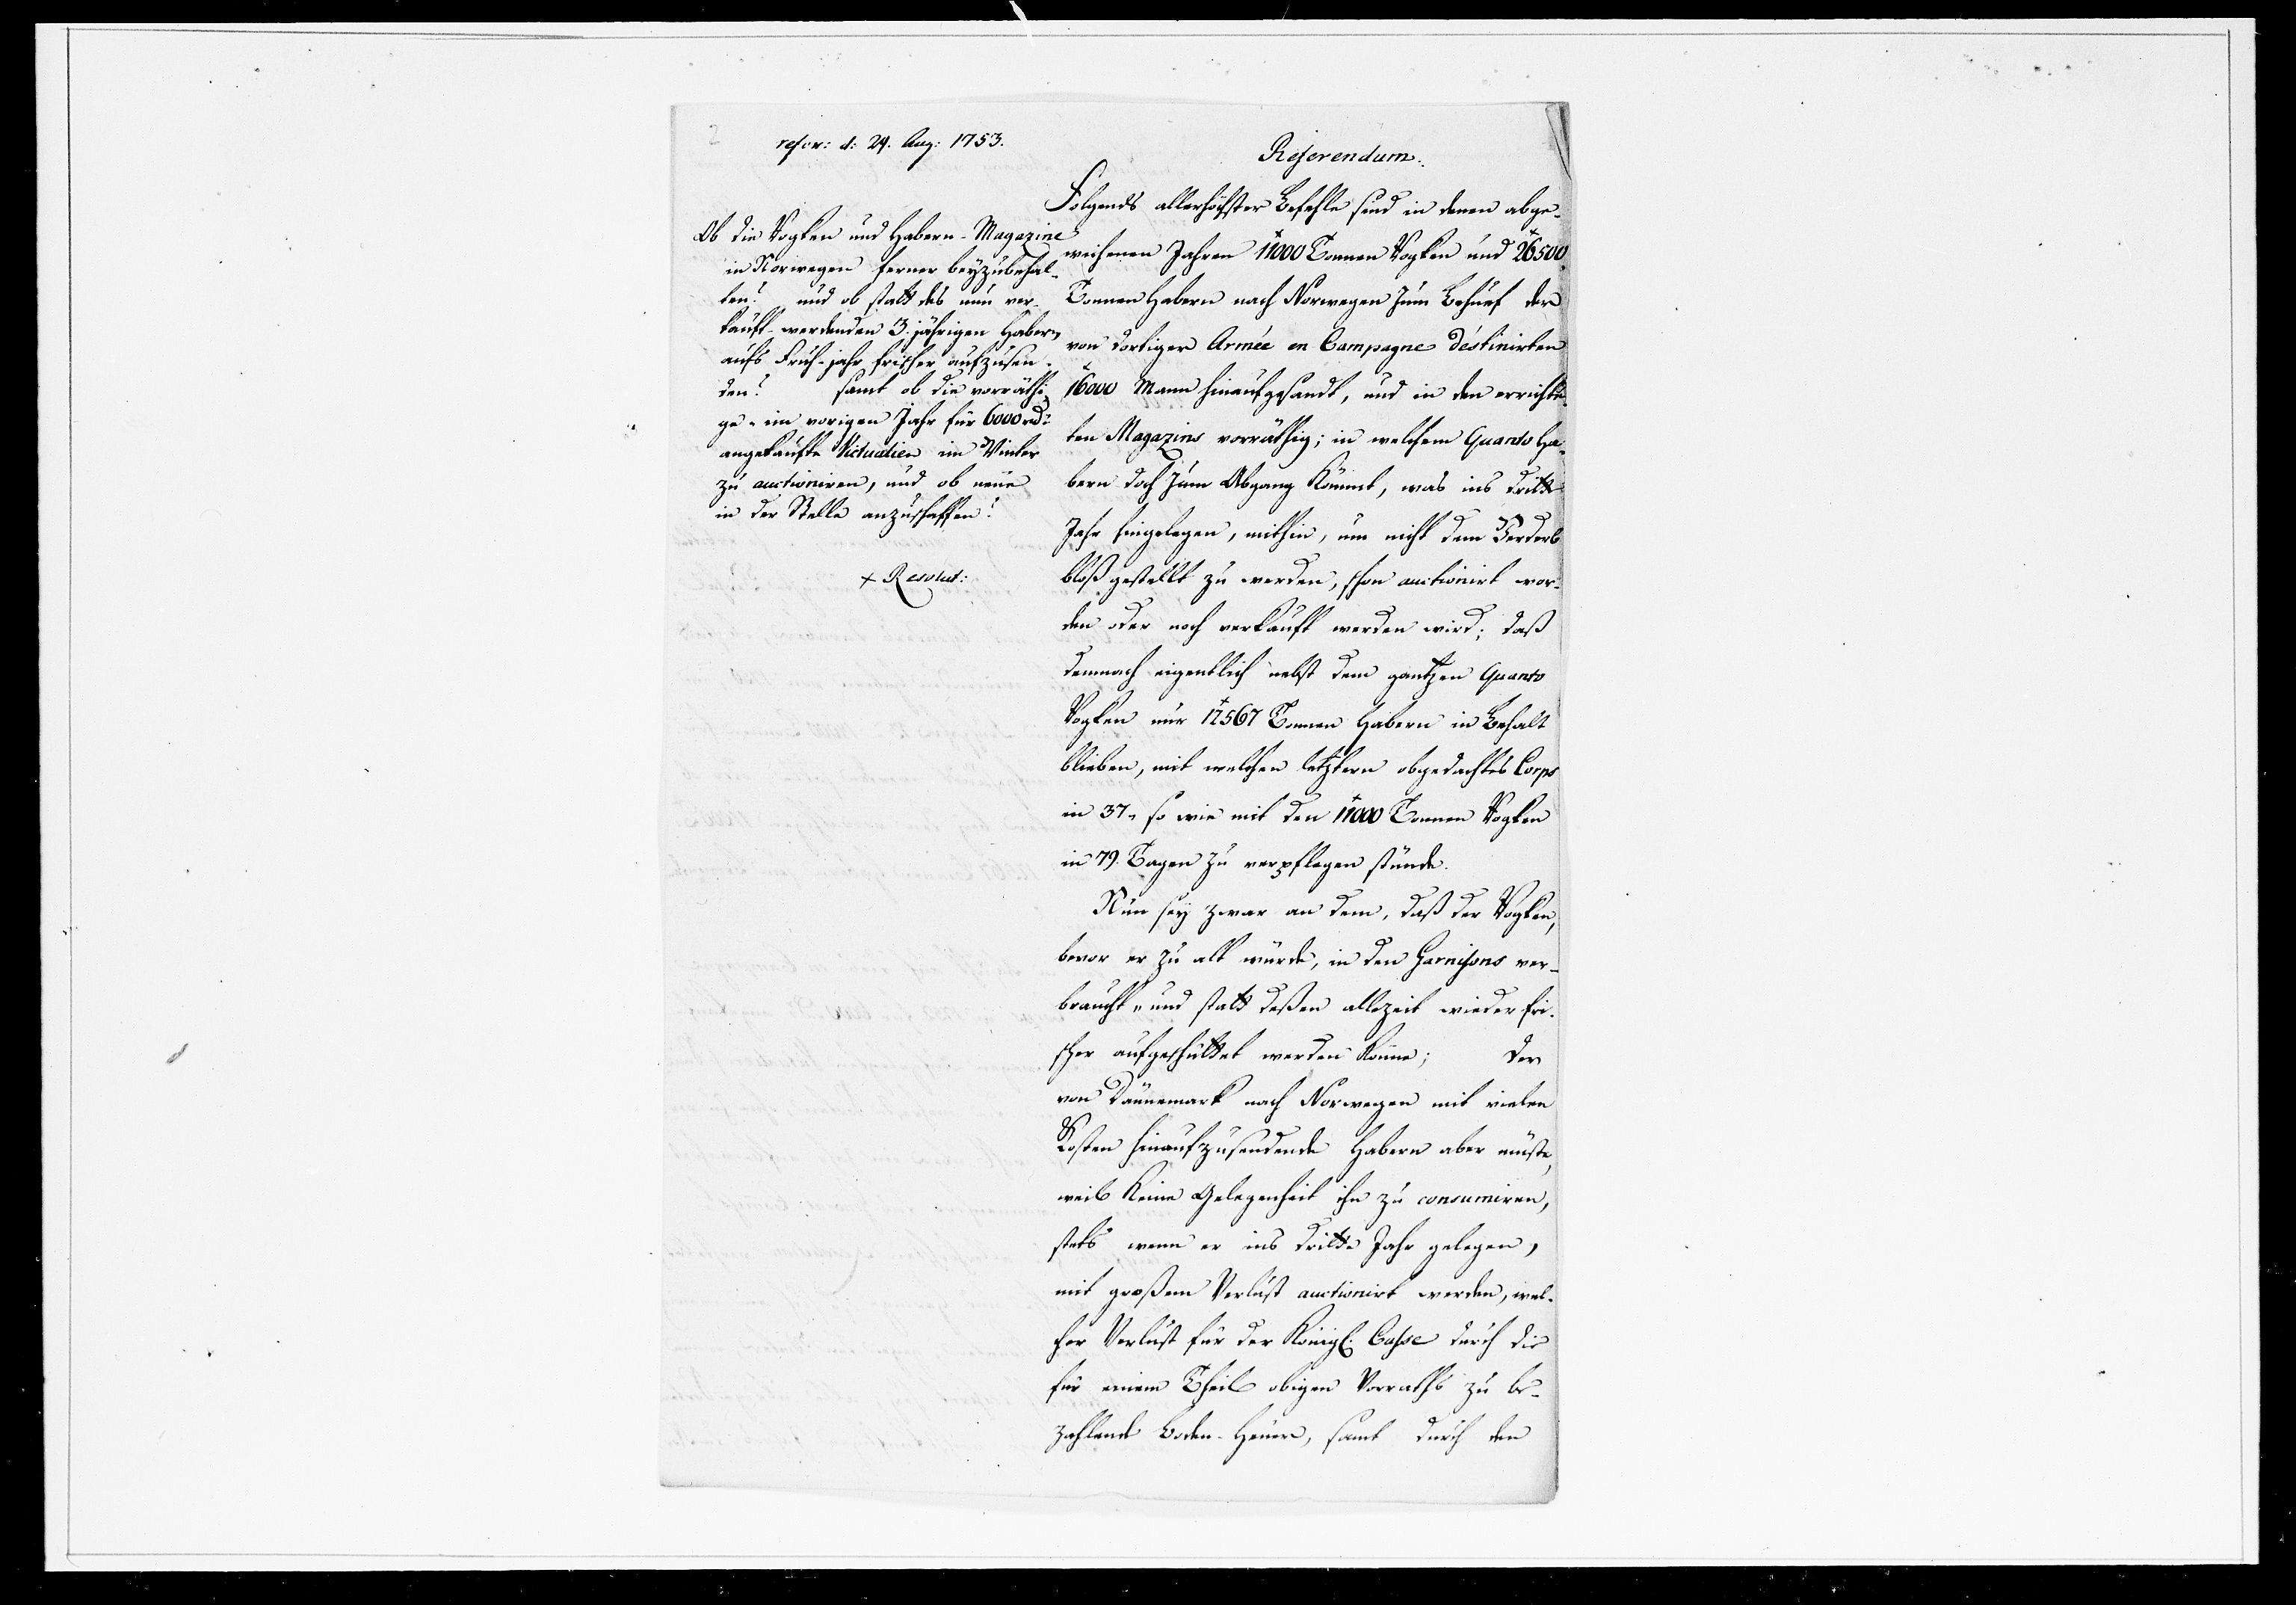 2
refer: d: 24. Aug: 1753.
Ob die Rogken und Habern-Magazine
in Norwegen ferner beyzubehal-
ten? und ob statt des nun ver-
kauft-werdenden 3.jährigen Habern,
aufs Früh-jahr frischer aufzusen-
den? samt ob die vorräthi-
ge- im vorigen Jahr für 6000 rd:
angekaufte Victualien im Winter
zu auctioniren, und ob neue
in der Stelle anzuschaffen?
+ Resolut:
Referendum.
Folgends allerhöchster Befehle sind in denen abge-
wichenen Jahren 11000 Tonnen Rogken und 26500
Tonnen Habern nach Norwegen zum Behuef der
von dortiger Armée en Campagne déstinirten
16000 Mann hinaufgesandt, und in den errichte-
ten Magazins vorräthig; in welchem Quanto Ha-
bern doch zum Abgang kömmt, was ins dritte
Jahr hingelegen, mithin, um nicht dem Verderb
bloß gestellt zu werden, schon auctionirt wor-
den oder noch verkauft werden wird; daß
demnach eigentlich nebst dem gantzen Quanto
Rogken nur 12567 Tonnen Habern in Behalt
blieben, mit welchen letztern obgedachtes Corps
in 37- so wie mit den 11000 Tonnen Rogken
in 79. Tagen zu verpflegen stünde.
Nun sey zwar an dem, daß der Rogken,
bevor er zu alt würde, in den Garnisons ver-
braucht- und statt deßen allezeit wieder fri-
scher aufgeschüttet werden könne; der
von Dännemark nach Norwegen mit vielen
Kosten hinaufzusendende Habern aber müste,
weil keine Gelegenheit ihn zu consumiren,
stets wenn er ins dritte Jahr gelegen,
mit großem Verlust auctionirt werden, wel-
cher Verlust für der Königl: Casse durch die
für einem Theil obigen Vorraths zu be-
zahlende Boden-Heuer, samt durch den